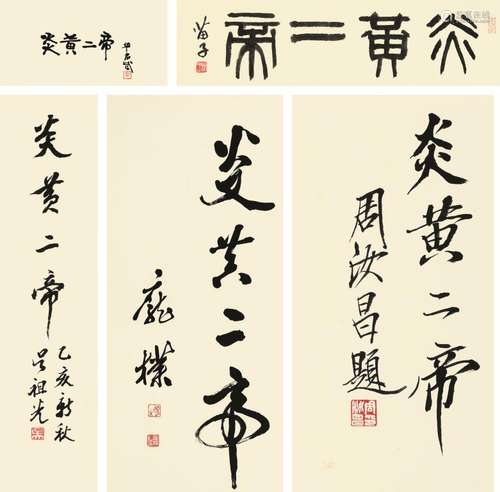 炎黄二帝
炎黃二帝
苗子
炎黄二帝
乙亥新秋
吴祖光
炎黄二帝
龐樸
炎黄二帝
周汝昌題